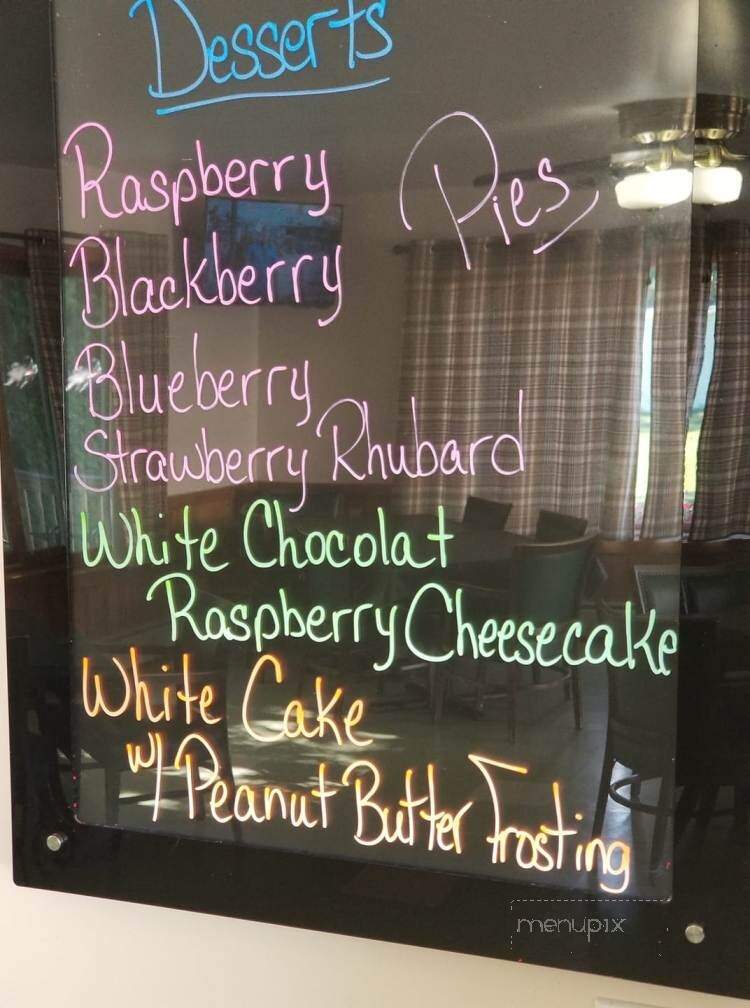 Desserts
Raspberry
Pies
Blackberry
Blueberry
Strawberry Rhubard
White Chocolat
Raspberry Cheesecake
White Cake
w/ Peanut Butter Frosting
menupix